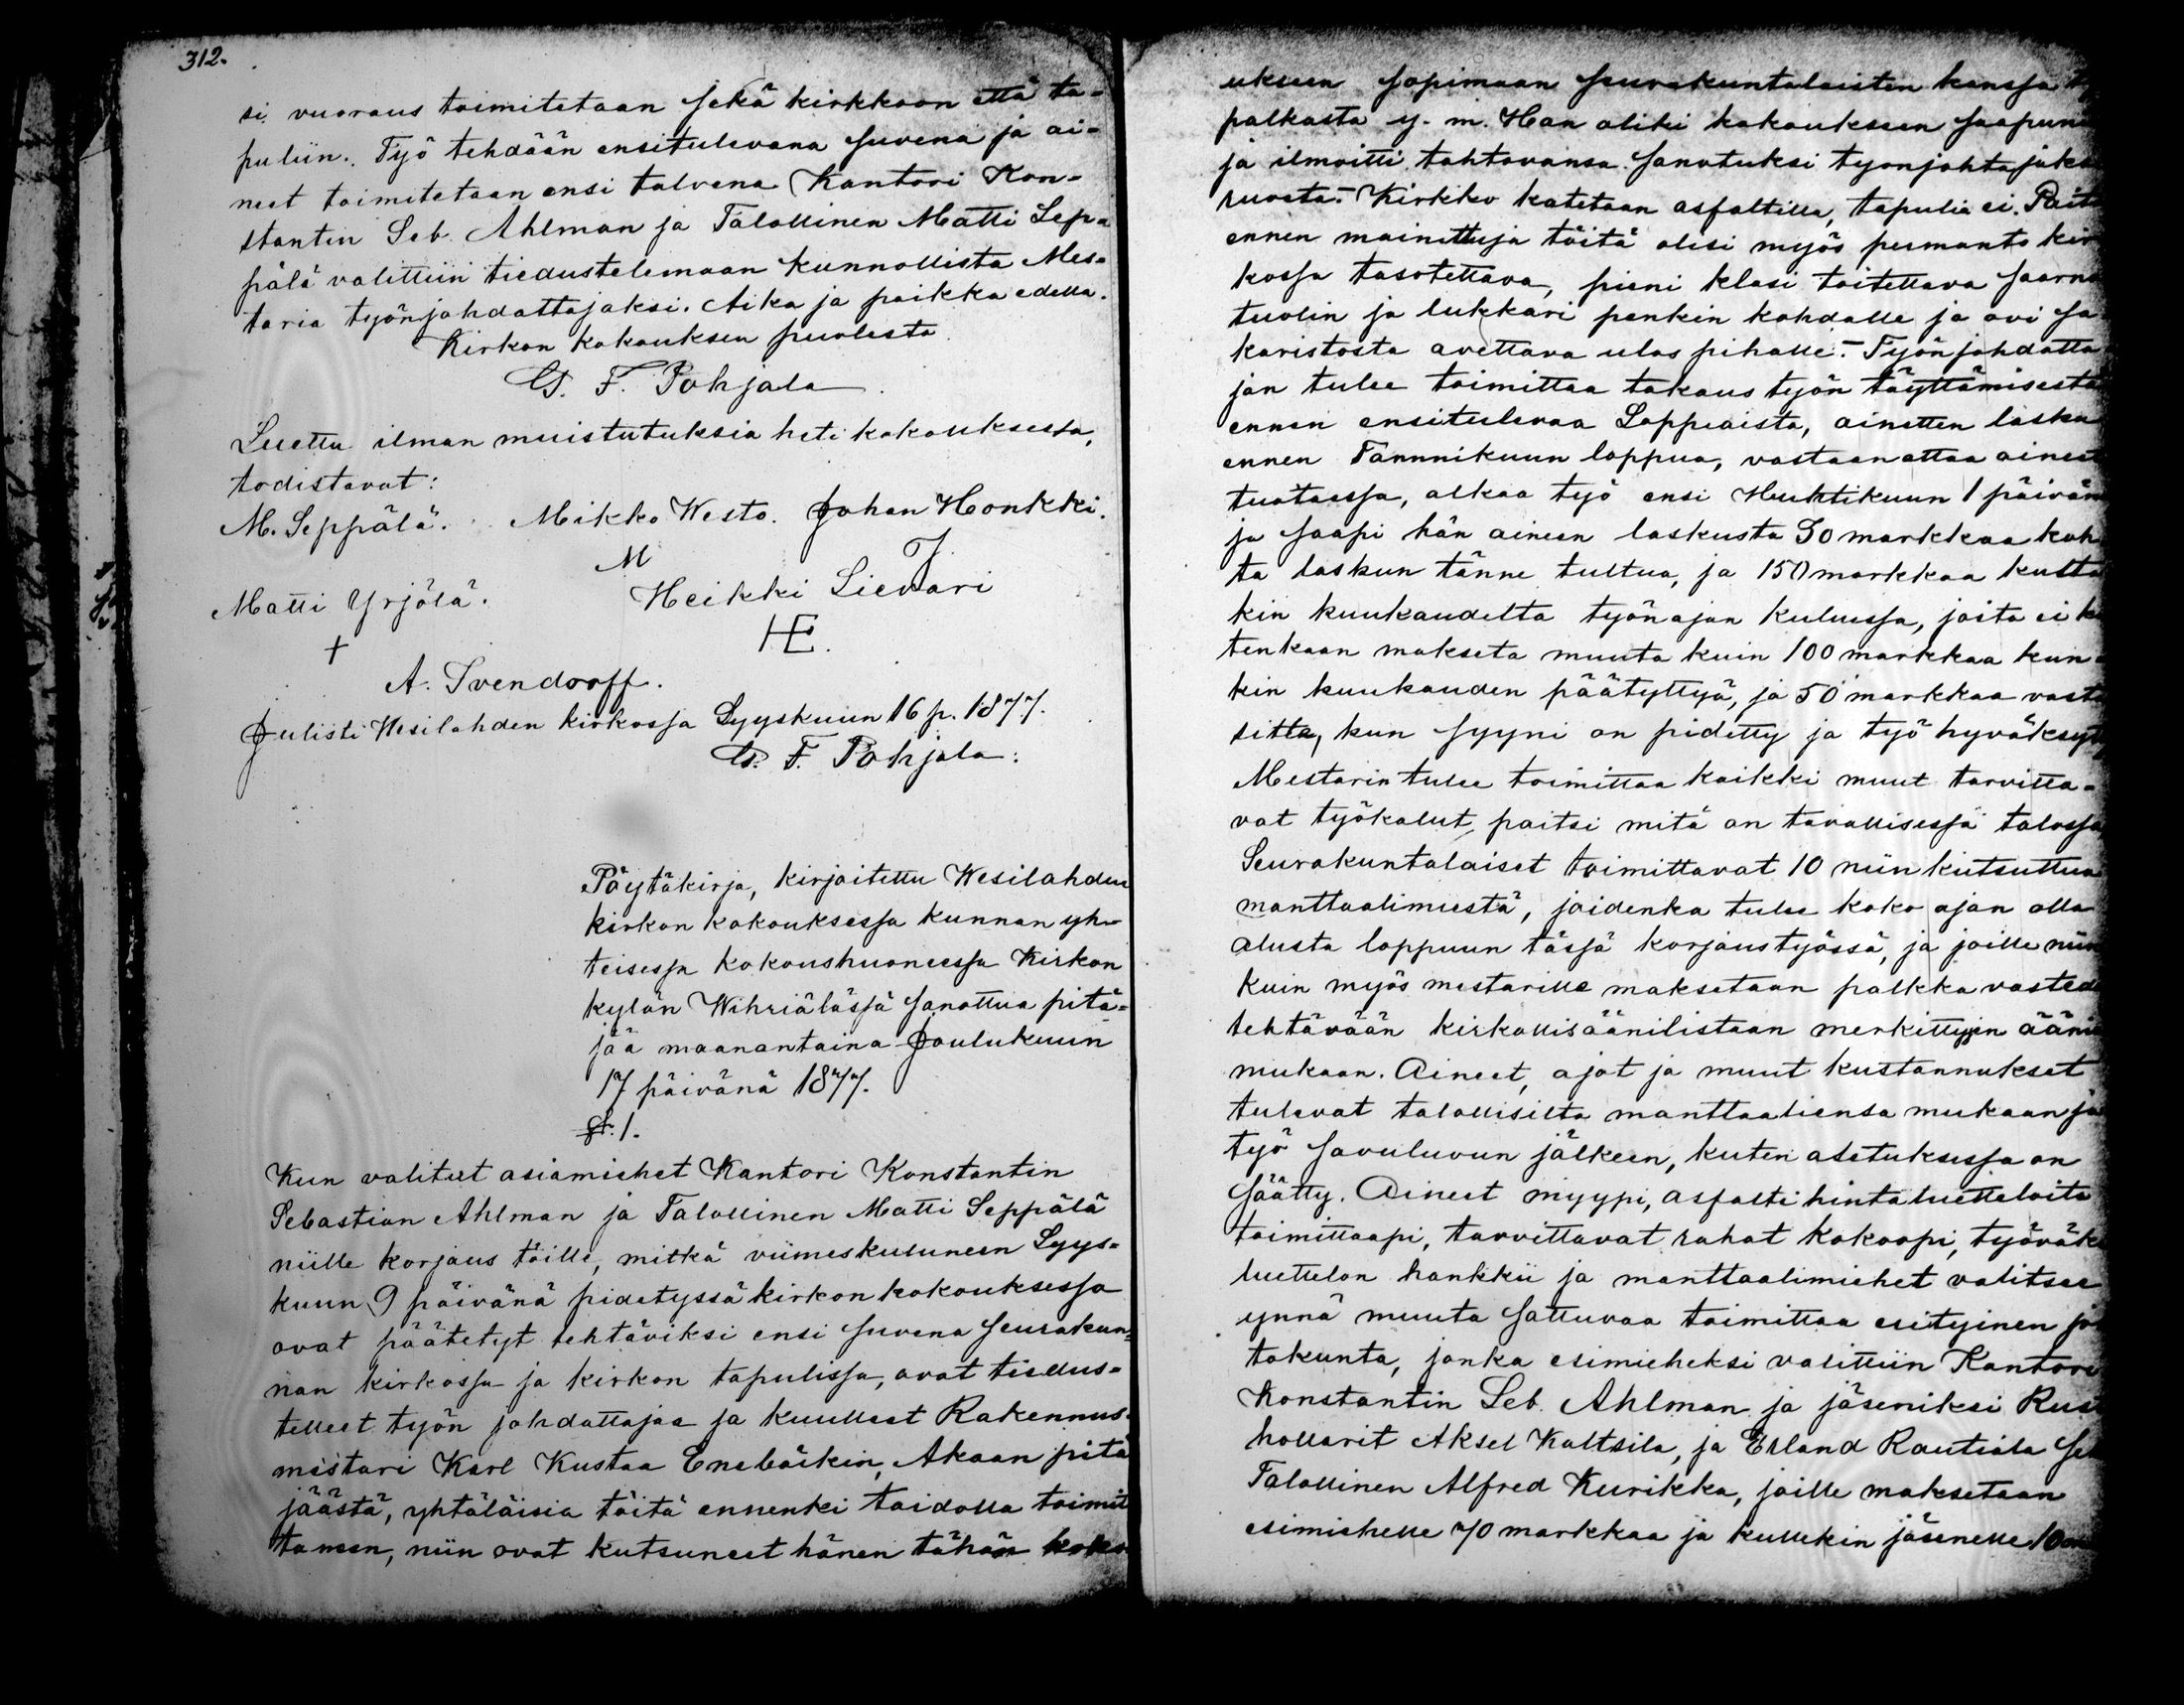 312.
si vuoraus toimitetaan sekä kirkkoon että ta-
puliin. Työ tehdään ensitulevana suvena ja ai-
neet toimitetaan ensi talvena Kantori Kon-
stantin Seb. Ahlman ja Talollinen Matti Sep-
pälä valittiin tiedustelemaan kunnollista Mes-
taria työnjohdattajaksi. Aika ja paikka edellä.
Kirkon kokouksen puolesta
G. F. Pohjala
Luettu ilman muistutuksia heti kokouksessa,
todistavat:
M. Seppälä. Mikko Westo. Johan Honkki.
M J.
Matti Yrjölä. Heikki Lievari
+ HE.
A. Svendorff.
Julisti Wesilahden kirkossa Syyskuun 16 p. 1877.
G. F. Pohjala:
Pöytäkirja, kirjoitettu Wesilahden
kirkon kokouksessa kunnan yh-
teisessa kokoushuoneessa Kirkon
kylän Wihriälässä sanottua pitä-
jää maanantaina Joulukuun
17 päivänä 1877.
§. 1.
Kun valitut asiamiehet Kantori Konstantin
Sebastian Ahlman ja Talollinen Matti Seppälä
niille korjaus töille, mitkä viimeskuluneen Syys-
kuun 9 päivänä pidetyssä kirkon kokouksessa
ovat päätetyt tehtäviksi ensi suvena seurakun-
nan kirkossa ja kirkon tapulissa, ovat tiedus-
telleet työn johdattajaa ja kuulleet Rakennus-
mestari Karl Kustaa Enebäckin, Akaan pitä
jäästä, yhtäläisiä töitä ennenki taidolla toimit
taneen, niin ovat kutsuneet hänen tähän koko
uksen sopimaan seurakuntalaisten kanssa
palkasta y. m. Han oliki kokoukseen saapunu
ja ilmoitti tahtovansa sanotuksi tyonjohtajaksi
ruveta. - Kirkko katetaan asfaltilla, tapulia ei. Paits
ennen mainittuja töitä olisi myös permanto kir
kossa tasotettava, pieni klasi toitettava saarna
tuolin ja lukkari penkin kohdalle ja ovi sa
karistosta avettava ulos pihalle. - Työnjohdatta
jan tulee toimittaa takaus työn täyttämisestä
ennen ensitulevaa Loppiaista, ainetten lasku
ennen Tammikuun loppua, vastaanottaa aineet
tuotaessa, alkaa työ ensi Huhtikuun 1 päivän
ja saapi hän aineen laskusta 50 markkaa koh
ta laskun tänne tultua, ja 150 markkaa kulta
kin kuukaudelta työnajan kuluessa, joita ei k
tenkaan makseta muuta kuin 100 markkaa kun-
kin kuukauden päätyttyä, ja 50 markkaa vasta
sitte, kun syyni on pidetty ja työ hyväksyt
Mestarin tulee toimittaa kaikki muut tarvitta-
vat työkalut, paitsi mitä on tavallisessa talossa
Seurakuntalaiset toimittavat 10 niin kutsuttua
manttaalimiestä, joidenka tulee koko ajan olla
alusta loppuun tässä korjaustyössä, ja joille niin
kuin myös mestarille maksetaan palkka vasted
tehtävään kirkollisäänilistaan merkittyjen ääni
mukaan. Aineet, ajot ja muut kustannukset
tulevat talollisilta manttaaliensa mukaan ja
työ savuluvun jälkeen, kuten asetuksessa on
säätty. Aineet myypi, asfalti hintaluetteloita
toimittaapi, tarvittavat rahat kokoopi, työväk
luettelon hankkii ja manttaalimiehet valitsee
ynnä muuta sattuvaa toimittaa erityinen joh
tokunta, jonka esimieheksi valittiin Kantori
Konstantin Seb. Ahlman ja jäseniksi Rust
hollarit Aksel Kaltsila, ja Erland Rautiala se
Talollinen Alfred Kurikka, joille maksetaan
esimiehelle 70 markkaa ja kullekin jäsenelle 10